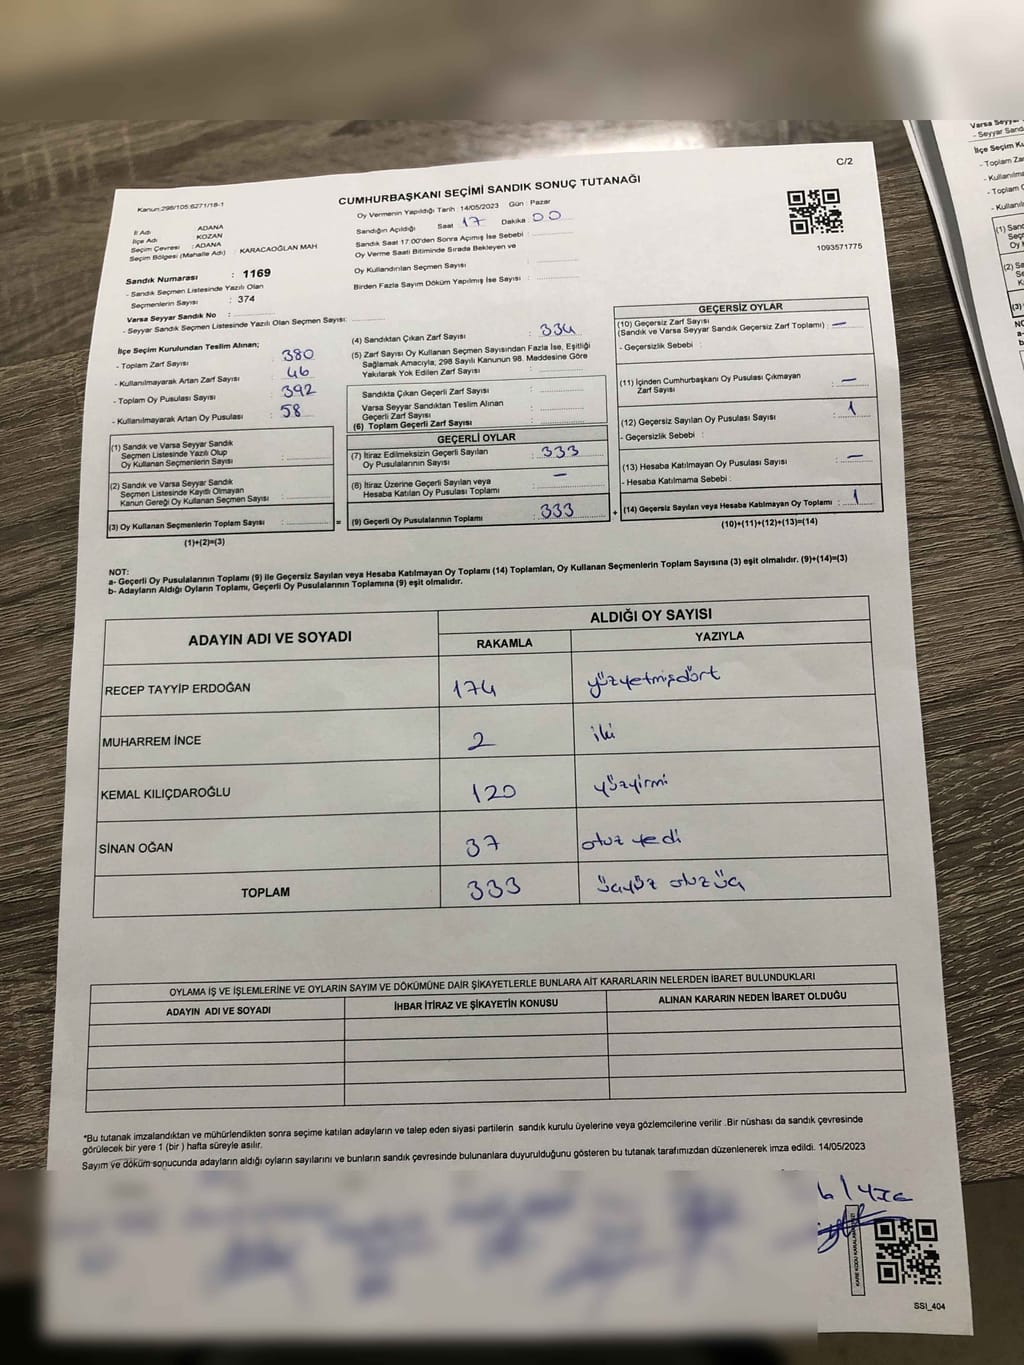 C/2
Kanun:298/105:6271/18-1
CUMHURBAŞKANI SEÇİMİ SANDIK SONUÇ TUTANAĞI
Oy Vermenin Yapıldığı Tarih :14/05/2023 Gün : Pazar
İl Adı ADANA
İlçe Adı KOZAN
Seçim Çevresi : ADANA
Seçim Bölgesi (Mahalle Adı) : KARACAOĞLAN MAH
Sandığın Açıldığı Saat 17 Dakika : 00
Sandık Saat 17.00'den Sonra Açımış İse Sebebi :
Oy Verme Saati Bitiminde Sırada Bekleyen ve
Oy Kullandırılan Seçmen Sayısı :
Birden Fazla Sayım Döküm Yapılmış İse Sayısı :
1093571775
Sandık Numarası : 1169
- Sandık Seçmen Listesinde Yazılı Olan
Seçmenlerin Sayısı : 374
Varsa Seyyar Sandık No :
- Seyyar Sandık Seçmen Listesinde Yazılı Olan Seçmen Sayısı:
İlçe Seçim Kurulundan Teslim Alınan;
- Toplam Zarf Sayısı : 380
- Kullanılmayarak Artan Zarf Sayısı : 46
- Toplam Oy Pusulası Sayısı : 392
- Kullanılmayarak Artan Oy Pusulası : 58
(1) Sandık ve Varsa Seyyar Sandık
Seçmen Listesinde Yazılı Olup
Oy Kullanan Seçmenlerin Sayısı :
(2) Sandık ve Varsa Seyyar Sandık
Seçmen Listesinde Kayıtlı Olmayan
Kanun Gereği Oy Kullanan Seçmen Sayısı :
(3) Oy Kullanan Seçmenlerin Toplam Sayısı : =
(1)+(2)=(3)
(4) Sandıktan Çıkan Zarf Sayısı : 334
(5) Zarf Sayısı Oy Kullanan Seçmen Sayısından Fazla İse, Eşitliği
Sağlamak Amacıyla; 298 Sayılı Kanunun 98. Maddesine Göre
Yakılarak Yok Edilen Zarf Sayısı :
Sandıkta Çıkan Geçerli Zarf Sayısı :
Varsa Seyyar Sandıktan Teslim Alınan
Geçerli Zarf Sayısı :
(6) Toplam Geçerli Zarf Sayısı :
GEÇERLİ OYLAR
(7) İtiraz Edilmeksizin Geçerli Sayılan
Oy Pusulalarının Sayısı : 333
(8) İtiraz Üzerine Geçerli Sayılan veya
Hesaba Katılan Oy Pusulası Toplamı : —
(9) Geçerli Oy Pusulalarının Toplamı : 333 +
GEÇERSİZ OYLAR
(10) Geçersiz Zarf Sayısı
(Sandık ve Varsa Seyyar Sandık Geçersiz Zarf Toplamı) : —
- Geçersizlik Sebebi :
(11) İçinden Cumhurbaşkanı Oy Pusulası Çıkmayan
Zarf Sayısı : —
(12) Geçersiz Sayılan Oy Pusulası Sayısı : 1
- Geçersizlik Sebebi :
(13) Hesaba Katılmayan Oy Pusulası Sayısı : —
- Hesaba Katılmama Sebebi :
(14) Geçersiz Sayılan veya Hesaba Katılmayan Oy Toplamı : 1
(10)+(11)+(12)+(13)=(14)
NOT:
a- Geçerli Oy Pusulalarının Toplamı (9) ile Geçersiz Sayılan veya Hesaba Katılmayan Oy Toplamı (14) Toplamları, Oy Kullanan Seçmenlerin Toplam Sayısına (3) eşit olmalıdır. (9)+(14)=(3)
b- Adayların Aldığı Oyların Toplamı, Geçerli Oy Pusulalarının Toplamına (9) eşit olmalıdır.
ADAYIN ADI VE SOYADI
ALDIĞI OY SAYISI
RAKAMLA YAZIYLA
RECEP TAYYİP ERDOĞAN 174 yüzyetmişdört
MUHARREM İNCE 2 iki
KEMAL KILIÇDAROĞLU 120 yüzyirmi
SİNAN OĞAN 37 otuz yedi
TOPLAM 333 üçyüz otuzüç
OYLAMA İŞ VE İŞLEMLERİNE VE OYLARIN SAYIM VE DÖKÜMÜNE DAİR ŞİKAYETLERLE BUNLARA AİT KARARLARIN NELERDEN İBARET BULUNDUKLARI
ADAYIN ADI VE SOYADI İHBAR İTİRAZ VE ŞİKAYETİN KONUSU ALINAN KARARIN NEDEN İBARET OLDUĞU
*Bu tutanak imzalandıktan ve mühürlendikten sonra seçime katılan adayların ve talep eden siyasi partilerin sandık kurulu üyelerine veya gözlemcilerine verilir .Bir nüshası da sandık çevresinde
görülecek bir yere 1 (bir ) hafta süreyle asılır.
Sayım ve döküm sonucunda adayların aldığı oyların sayılarını ve bunların sandık çevresinde bulunanlara duyurulduğunu gösteren bu tutanak tarafımızdan düzenlenerek imza edildi. 14/05/2023
SSI_404